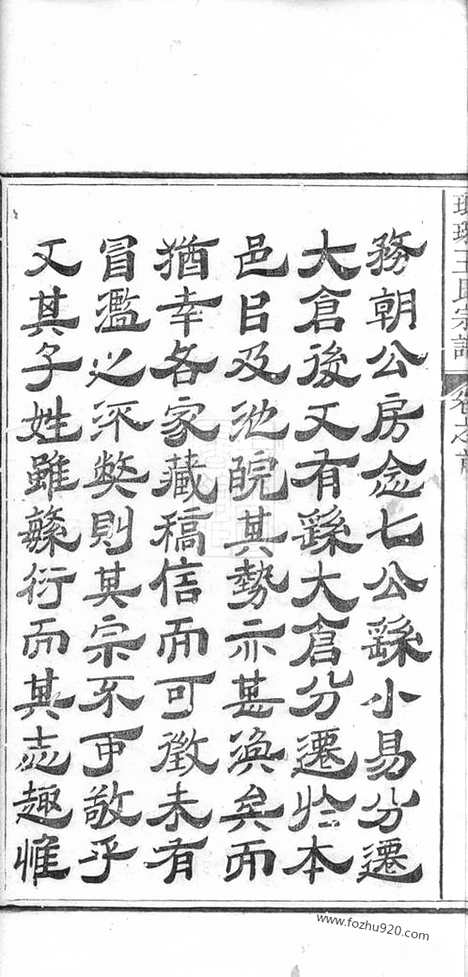 琅琊王氏宗譜 卷之首
務朝公房念七公繇小易分遷
大倉後又有繇大倉分遷於本
邑日及池皖其勢亦甚渙矣而
猶幸各家藏稿信而可徵未有
冒濫之獘則其宗不可敬乎
又其子姓雖繁衍而其志趣惟
www.fozhu920.com